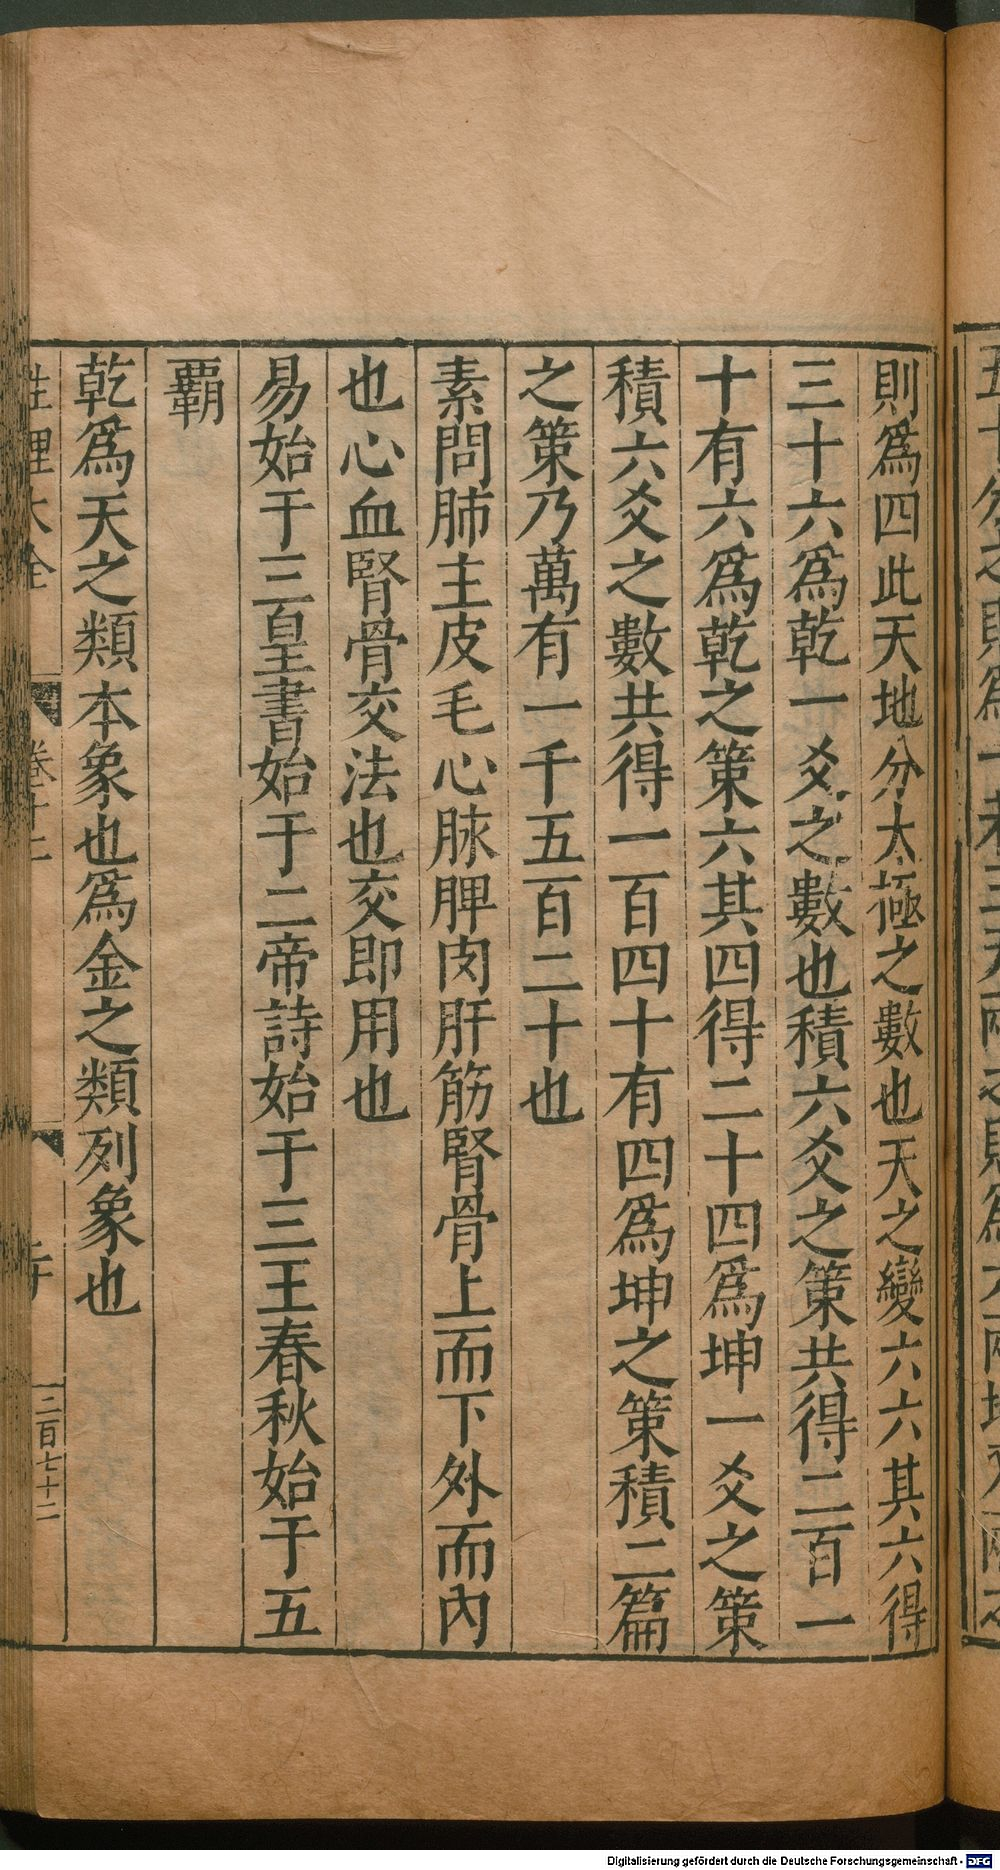 則爲四此天地分太極之數也天之變六六其六得
三十六爲乾一爻之數也積六爻之策共得二百一
十有六爲乾之策六其四得二十四爲坤一爻之策
積六爻之數共得一百四十有四爲坤之策積二篇
之策乃萬有一千五百二十也
素問肺主皮毛心脉脾肉肝筋腎骨上而下外而內
也心血腎骨交法也交即用也
易始于三皇書始于二帝詩始于三王春秋始于五
霸
乾爲天之類本象也爲金之類列象也
性理大全
卷十二
三百七十二
Digitalisierung gefördert durch die Deutsche Forschungsgemeinschaft - DFG